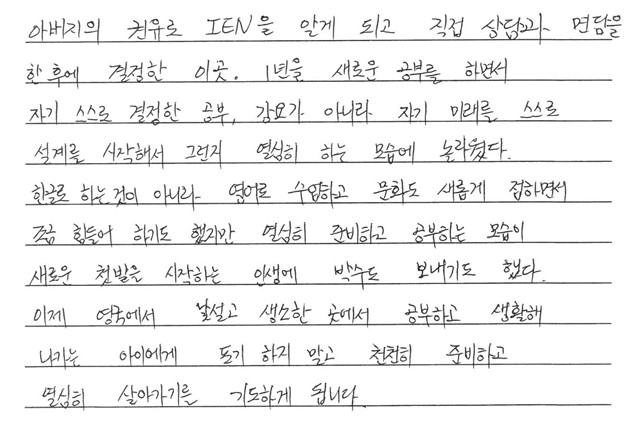 아버지의 권유로 IEN을 알게 되고 직접 상담과 면담을
한 후에 결정한 이곳. 1년을 새로운 공부를 하면서
자기 스스로 결정한 공부, 강요가 아니라 자기 미래를 스스로
설계를 시작해서 그런지 열심히 하는 모습에 놀라웠다.
한글로 하는것이 아니라 영어로 수업하고 문화도 새롭게 접하면서
조금 힘들어 하기도 했지만 열심히 준비하고 공부하는 모습이
새로운 첫발을 시작하는 인생에 박수도 보내기도 했다.
이제 영국에서 낯설고 생소한 곳에서 공부하고 생활해
나가는 아이에게 포기 하지 말고 천천히 준비하고
열심히 살아가기를 기도하게 됩니다.